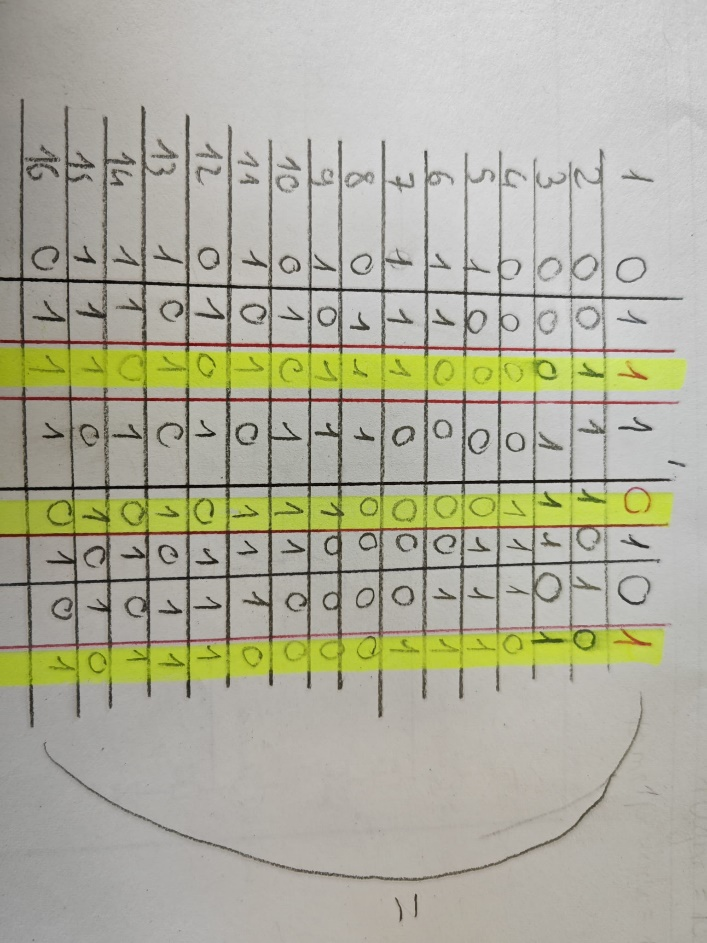 1 0 1 1 1 0 1 0 1
2 0 0 1 1 1 0 1 0
3 0 0 0 1 1 1 0 1
4 0 0 0 0 1 1 1 0
5 1 0 0 0 0 1 1 1
6 1 1 0 0 0 0 1 1
7 1 1 1 0 0 0 0 1
8 0 1 1 1 0 0 0 0
9 1 0 1 1 1 0 0 0
10 0 1 0 1 1 1 0 0
11 1 0 1 0 1 1 1 0
12 0 1 0 1 0 1 1 1
13 1 0 1 0 1 0 1 1
14 1 1 0 1 0 1 0 1
15 1 1 1 0 1 0 1 0
16 0 1 1 1 0 1 0 1
=